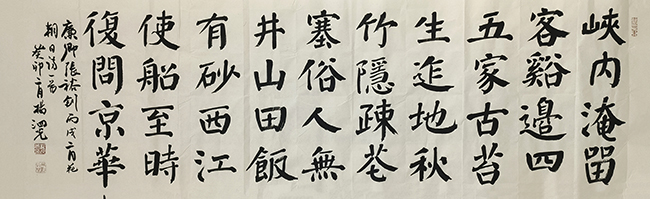 峽內淹留
客谿邊四
五家古苔
生迮地秋
竹隱疎花
塞俗人無
井山田飯
有砂西江
使船至時
復問京華
廉卿張裕釗丙戌二月花
朝日詩一首
癸卯二月楊